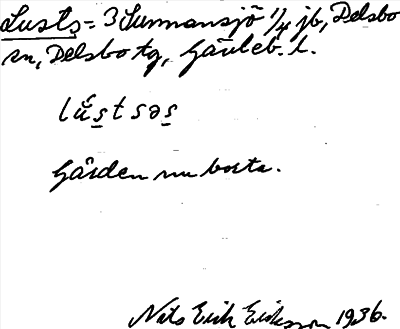 Lusts = 3 Sunnansjö 1/4 jb, Delsbo
sn, Delsbo tg, Gävleb. l.
lŭstsəs
Gården nu borta.
Nats Erik Eriksson 1936.